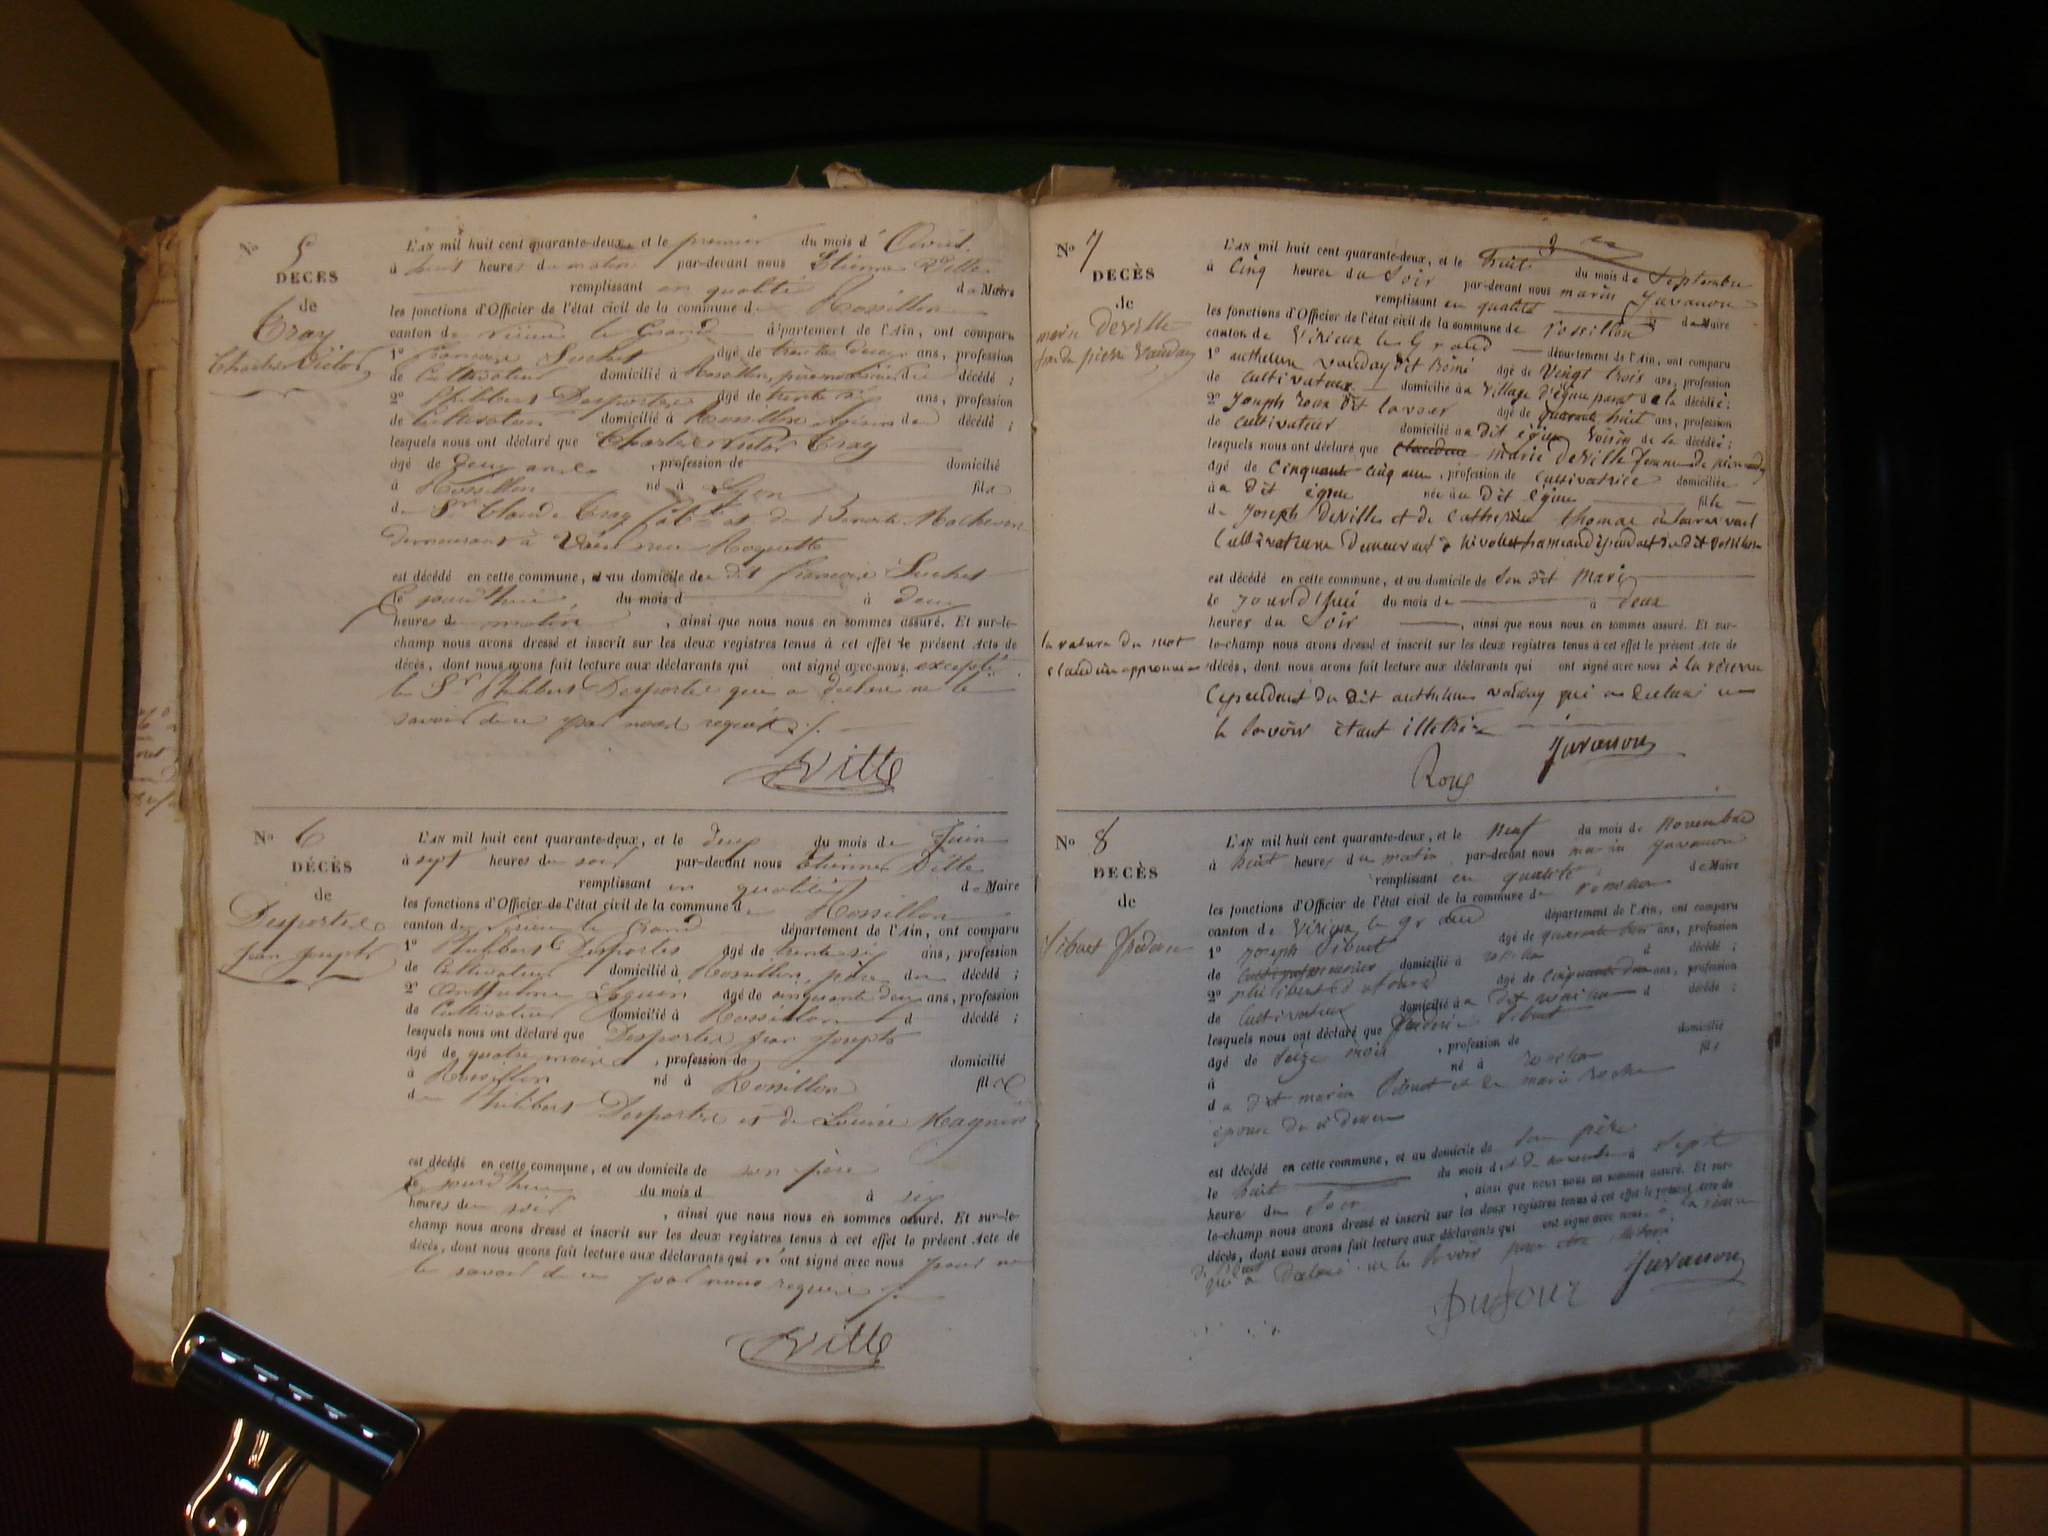 No 5
DÉCÈS
de
Cray
Charles Victor
L'AN mil huit cent quarante-deux et le premier du mois d' Avril
à huit heures du matin par-devant nous Etienne Vitte
remplissant en qualité de Maire
les fonctions d'Officier de l'état civil de la commune de Rossillon
canton de Virieu le Grand département de l'Ain, ont comparu
1° françois Suchet âgé de trente deux ans, profession
de Cultivateur domicilié à Rossillon, père nourricier du décédé ;
2° Philibert Desportes âgé de trente six ans, profession
de Cultivateur domicilié à Rossillon du décédé ;
lesquels nous ont déclaré que Charles Victor Cray
âgé de deux ans , profession de domicilié
à Rossillon né à Lyon fils
de Sr Claude Cray et de Benoite
demeurant à rue
est décédé en cette commune, et au domicile de dit françois Suchet
le jourd'hui du mois d à deux
heures du matin , ainsi que nous nous en sommes assuré. Et sur-le-
champ nous avons dressé et inscrit sur les deux registres tenus à cet effet le présent Acte de
décès, dont nous avons fait lecture aux déclarants qui ont signé avec nous, excepté
le Sr Philibert Desportes qui a déclaré ne le
savoir de ce par nous requis ./.
Vitte
No 6
DÉCÈS
de
Desportes
Jean Joseph
L'AN mil huit cent quarante-deux, et le deux du mois de Juin
à sept heures du soir par-devant nous Etienne Vitte
remplissant en qualité de Maire
les fonctions d'Officier de l'état civil de la commune de Rossillon
canton de Virieu le Grand département de l'Ain, ont comparu
1° Philibert Desportes âgé de trente six ans, profession
de Cultivateur domicilié à Rossillon, père du décédé ;
2° Anthelme Seguin âgé de cinquante deux ans, profession
de Cultivateur domicilié à Rossillon d décédé ;
lesquels nous ont déclaré que Desportes Jean Joseph
âgé de quatre mois , profession de domicilié
à Rossillon né à Rossillon fils
de Philibert Desportes et de Louise Magnin
est décédé en cette commune, et au domicile de son père
le jourd'hui du mois d à six
heures du soir , ainsi que nous nous en sommes assuré. Et sur-le-
champ nous avons dressé et inscrit sur les deux registres tenus à cet effet le présent Acte de
décès, dont nous avons fait lecture aux déclarants qui n'ont signé avec nous pour ne
le savoir de ce par nous requis ./.
Vitte
No 7
DECÈS
de
marie Deville
fme de pierre Vauday
L'AN mil huit cent quarante-deux, et le huit du mois de Septembre
à Cinq heures du Soir par-devant nous marin Juvanon
remplissant en qualité de Maire
les fonctions d'Officier de l'état civil de la commune de rossillon
canton de Virieux le Grand département de l'Ain, ont comparu
1° anthelme vauday dit âgé de Vingt trois ans, profession
de cultivateur domicilié au village d'égieu parent de la décédée ;
2° Joseph roux dit âgé de quarante huit ans, profession
de cultivateur domicilié au dit égieu voisin de la décédée ;
lesquels nous ont déclaré que Claudine marie deville femme de pierre
âgé de cinquante cinq ans , profession de cultivatrice domiciliée
au dit égieu née au dit égieu fille
de Joseph devilles et de Catherine thomas
Cultivateurs Demeurant à
est décédé en cette commune, et au domicile de Son dit Mari
le jourd'hui du mois de à deux
heures du Soir , ainsi que nous nous en sommes assuré. Et sur-
le-champ nous avons dressé et inscrit sur les deux registres tenus à cet effet le présent Acte de
la rature du mot
claudine approuvée
décès, dont nous avons fait lecture aux déclarants qui ont signé avec nous à la réserve
Cependant du dit anthelme vauday qui a déclaré ne
le Savoir étant illétré
Juvanon
Roux
No 8
DECÈS
de
Sibuet fréderic
L'AN mil huit cent quarante-deux, et le Neuf du mois de Novembre
à huit heures du matin par-devant nous marin Juvanon
remplissant en qualité de Maire
les fonctions d'Officier de l'état civil de la commune de rossillon
canton de Virieux le grand département de l'Ain, ont comparu
1° Joseph Sibuet âgé de quarante ans, profession
de domicilié à rossillon d décédé ;
2° philibert dufour âgé de Cinquante ans, profession
de cultivateur domicilié au dit rossillon d décédé ;
lesquels nous ont déclaré que fréderic Sibuet
âgé de Seize mois , profession de domicilié
à né à rossillon fils
du dit Sibuet et de marie
épouse
est décédé en cette commune, et au domicile de Son père
le huit du mois de novembre à Sept
heures du Soir , ainsi que nous nous en sommes assuré. Et sur-
le-champ nous avons dressé et inscrit sur les deux registres tenus à cet effet le présent Acte de
décès, dont nous avons fait lecture aux déclarants qui ont signé avec nous à la réserve
qui a déclaré ne le Savoir
Juvanon
Dufour